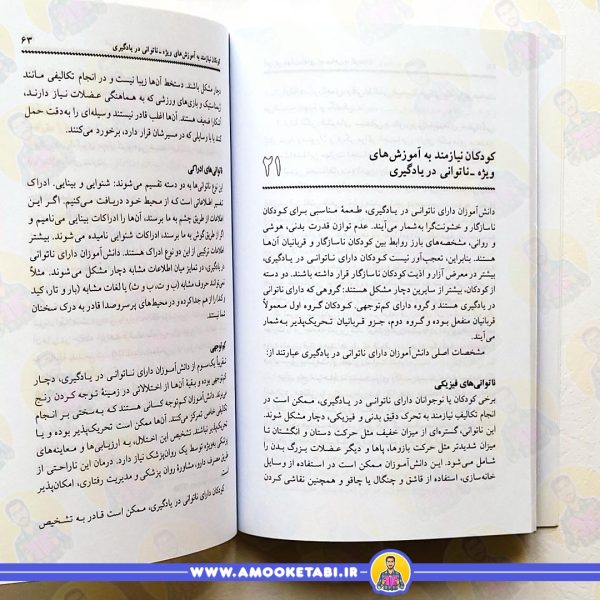 ۲۱
کودکان نیازمند به آموزش‌های
ویژه -ناتوانی در یادگیری
دانش‌آموزان دارای ناتوانی در یادگیری، طعمهٔ مناسبی برای کودکان
ناسازگار و خشونت‌گرا به‌شمار می‌آیند. عدم توازن قدرت بدنی، هوشی
و روانی، مشخصه‌های بارز روابط بین کودکان ناسازگار و قربانیان آن‌ها
هستند. بنابراین، تعجب‌آور نیست کودکان دارای ناتوانی در یادگیری،
بیشتر در معرض آزار و اذیت کودکان ناسازگار قرار داشته باشند. دو دسته
از کودکان، بیشتر از سایرین دچار مشکل هستند: گروهی که دارای ناتوانی
در یادگیری هستند و گروه دارای کم‌توجهی. کودکان گروه اول معمولاً
قربانیان منفعل بوده و گروه دوم، جزو قربانیان تحریک‌پذیر به‌شمار
می‌آیند.
مشخصات اصلی دانش‌آموزان دارای ناتوانی در یادگیری عبارتند از:
ناتوانی‌های فیزیکی
برخی کودکان یا نوجوانان دارای ناتوانی در یادگیری، ممکن است در
انجام تکالیفِ نیازمند به تحرک دقیق بدنی و فیزیکی، دچار مشکل شوند.
این ناتوانی، گستره‌ای از میزان خفیف مثل حرکت دستان و انگشتان تا
میزان شدیدتر مثل حرکت بازوها، پاها و دیگر عضلات بزرگ بدن را
شامل می‌شود. این دانش‌آموزان ممکن است در استفاده از وسایل
خانه‌سازی، استفاده از قاشق و چنگال یا چاقو و همچنین نقاشی کردن
کودکان نیازمند به آموزش‌های ویژه -ناتوانی در یادگیری ۶۳
دچار مشکل باشند. دستخط آن‌ها زیبا نیست و در انجام تکالیفی مانند
ژیمناستیک و بازی‌های ورزشی که به هماهنگی عضلات نیاز دارند،
آشکارا ضعیف هستند. آن‌ها اغلب قادر نیستند وسیله‌ای را به‌دقت حمل
کنند یا با وسایلی که در مسیرشان قرار دارد، برخورد می‌کنند.
ناتوانی‌های ادراکی
این نوع ناتوانی‌ها به دو دسته تقسیم می‌شوند: شنوایی و بینایی. ادراک
تفسیر اطلاعاتی است که از محیط خود دریافت می‌کنیم. اگر این
اطلاعات از طریق چشم به ما برسند، آن‌ها را ادراکات بینایی می‌نامیم و
اگر از طریق گوش به ما برسند، ادراکات شنوایی نامیده می‌شوند. بیشتر
اطلاعات ترکیبی از این دو نوع ادراک هستند. دانش‌آموزان دارای ناتوانی
در یادگیری، در تمایز میان اطلاعات مشابه دچار مشکل می‌شوند. مثلاً
نمی‌توانند حروف مشابه (ب و ت، ب و ث) یا لغات مشابه (بار و تار، کید
و کدار) از هم جدا کرده و در محیط‌های پرسروصدا قادر به درک سخنان
شما نیستند.
کم‌توجهی
تقریباً یک‌سوم از دانش‌آموزان دارای ناتوانی در یادگیری، دچار
کم‌توجهی بوده و بقیهٔ آن‌ها از اختلالاتی در زمینهٔ توجه کردن رنج
می‌برند. دانش‌آموزان کم‌توجه کسانی هستند که به‌سختی بر انجام
تکلیفی خاص تمرکز می‌کنند. آن‌ها ممکن است تحریک‌پذیر بوده و یا
نباشند. تشخیص این اختلال، به ارزیابی‌ها و معاینه‌های
پزشکی به‌ویژه توسط یک روان‌پزشک نیاز دارد. درمان این ناراحتی از
طریق مصرف دارو، مشاورهٔ روان پزشکی و مدیریت رفتاری، امکان‌پذیر
است.
کودکان دارای ناتوانی در یادگیری، ممکن است قادر به تشخیص
WWW.AMOOKETABI.IR